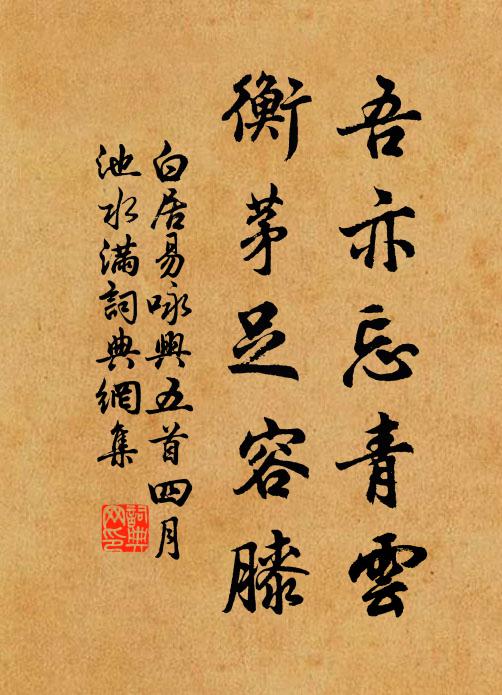 吾亦忘青雲
衡茅足容膝
白居易咏興五首四月
池水滿詞典網集
詞典網印